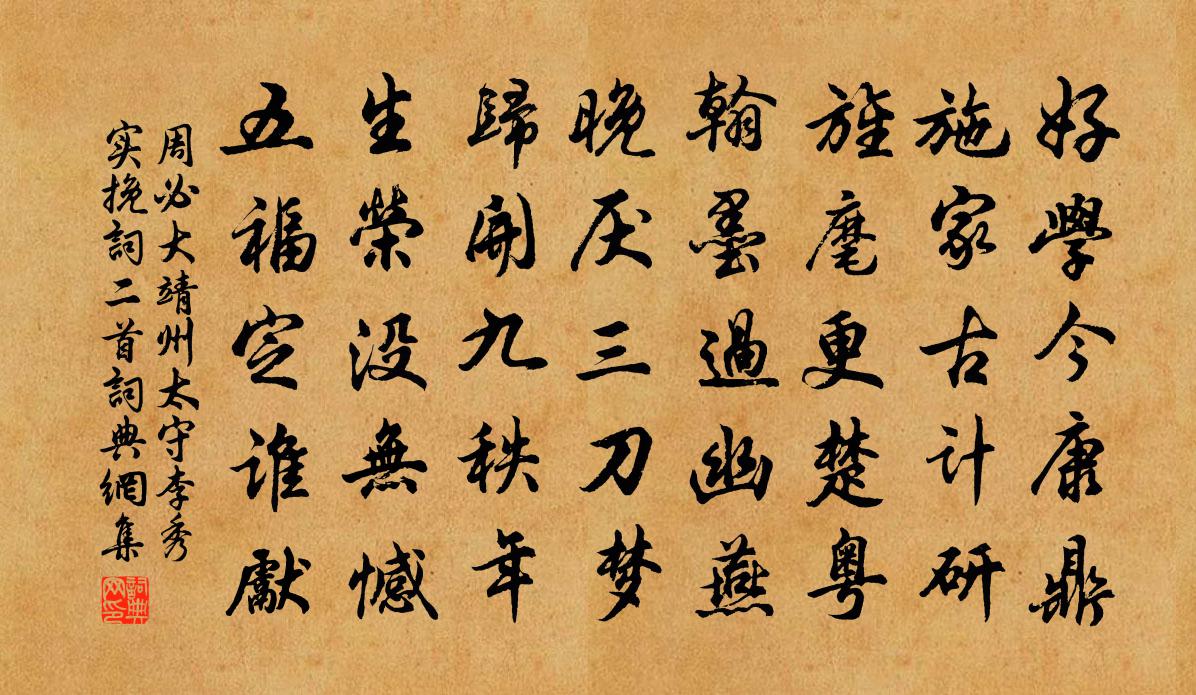 好學今康鼎
施家古计研
旌麾更楚粤
翰墨過幽燕
晚厌三刀梦
歸開九秩年
生榮没無憾
五福定谁獻
周必大靖州太守李秀
实挽詞二首詞典網集
詞典
网印